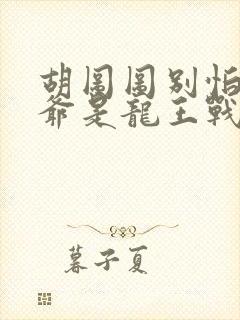 胡圖圖別怕
爺是龍王戰
暮子夏